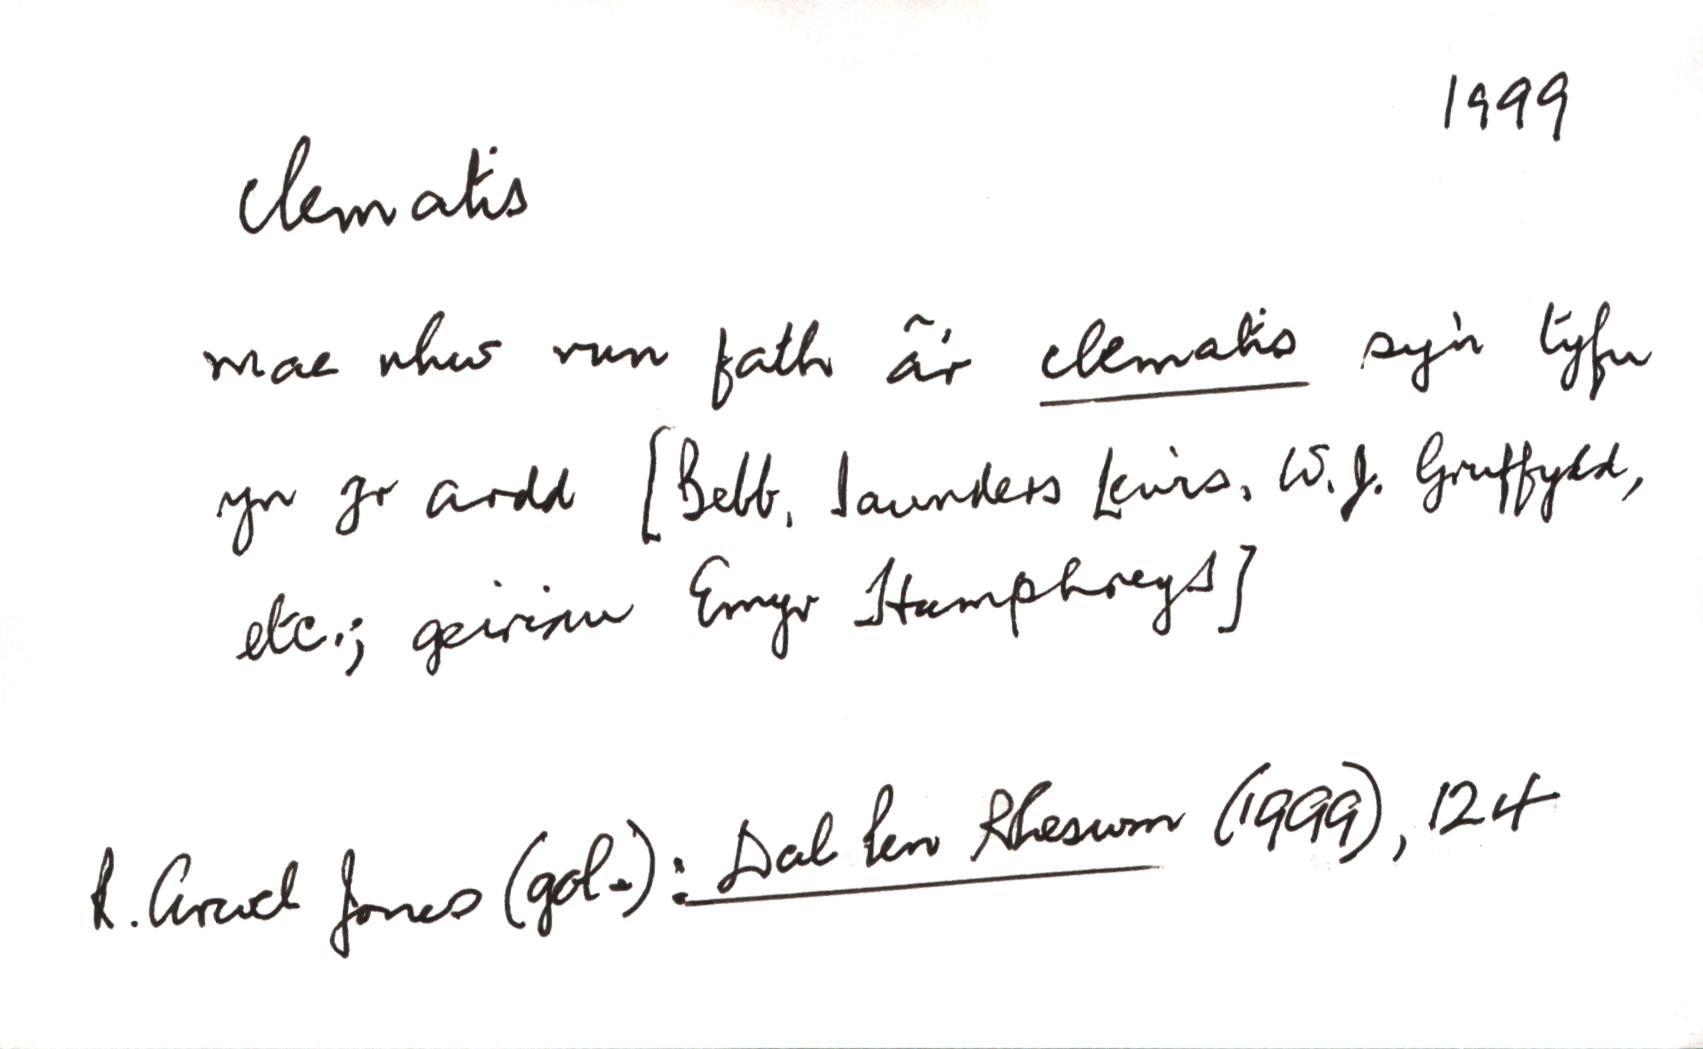 1999
clematis
mae nhw run fath â'r clematis sy'n tyfu
yn yr ardd [Bebb, Saunders Lewis, W.J. Gruffydd,
etc.; geiriau Emyr Humphreys]
R. Arwel Jones (gol.): Dal Pen Rheswm (1999), 124